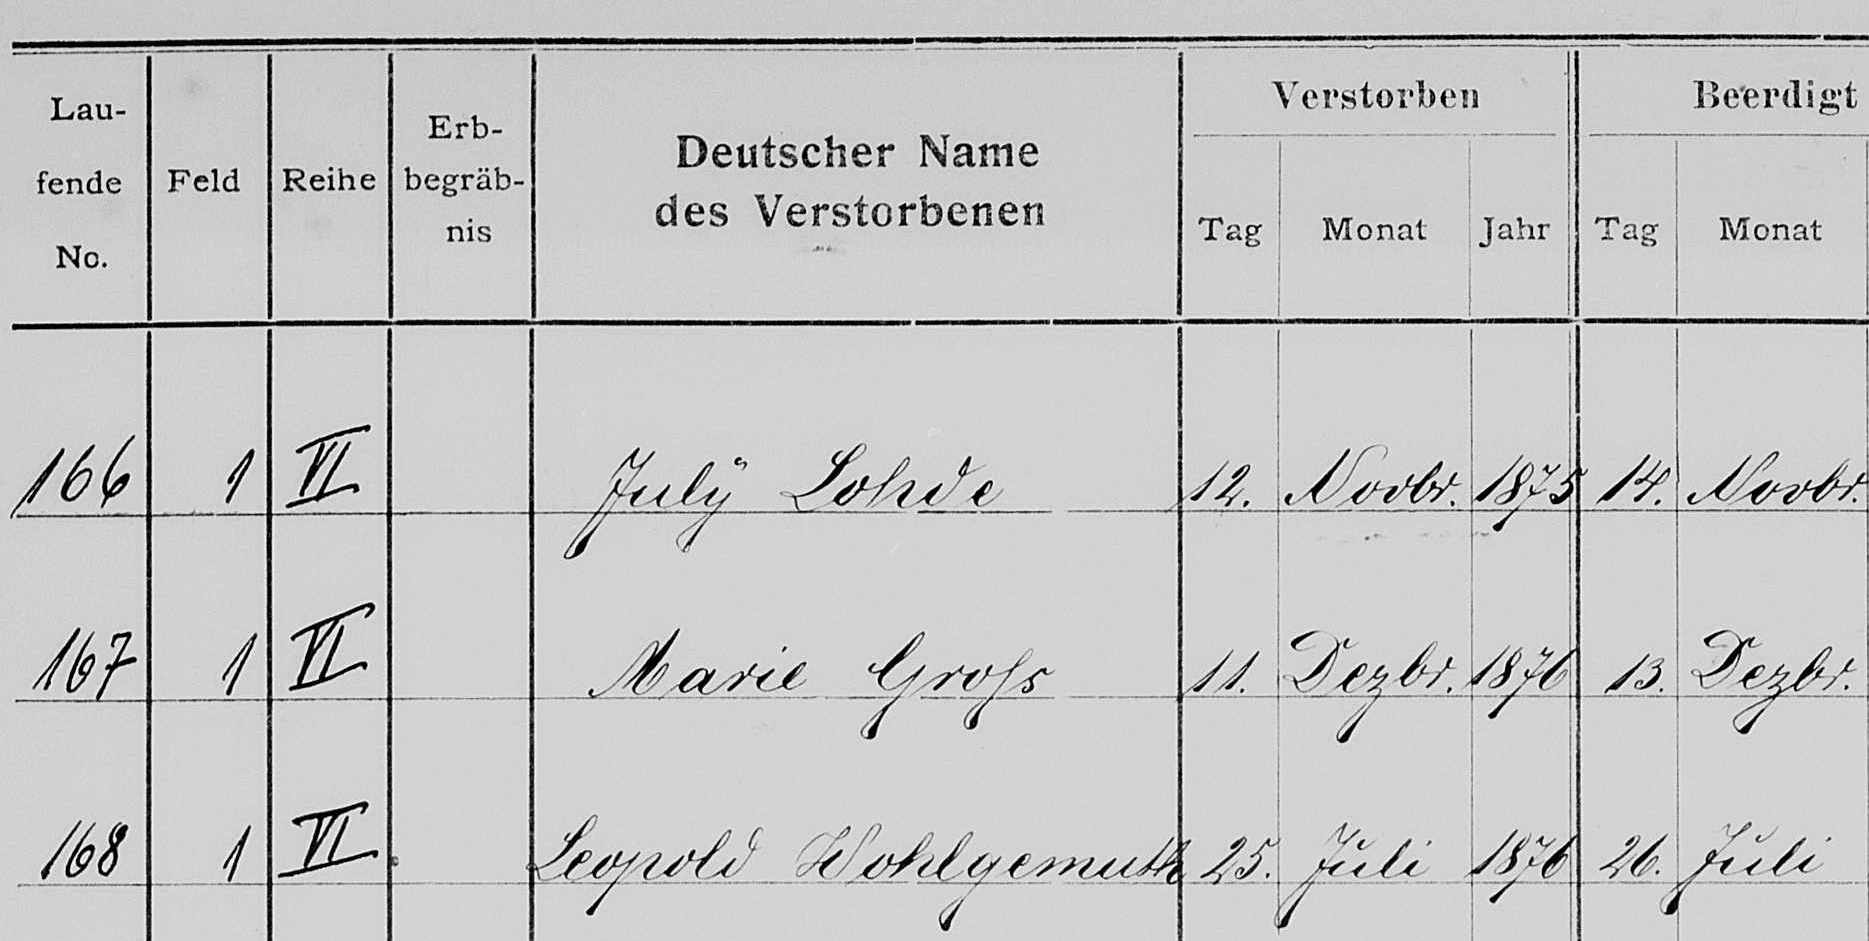 Lau-
fende
No.
Feld
Reihe
Erb-
begräb-
nis
Deutscher Name
des Verstorbenen
Verstorben
Tag Monat Jahr
Beerdigt
Tag Monat
166 1 VI July Lohde 12. Novbr. 1875 14. Novbr.
167 1 VI Marie Groſs 11. Dezbr. 1876 13. Dezbr.
168 1 VI Leopold Wohlgemuth 25. Juli 1876 26. Juli